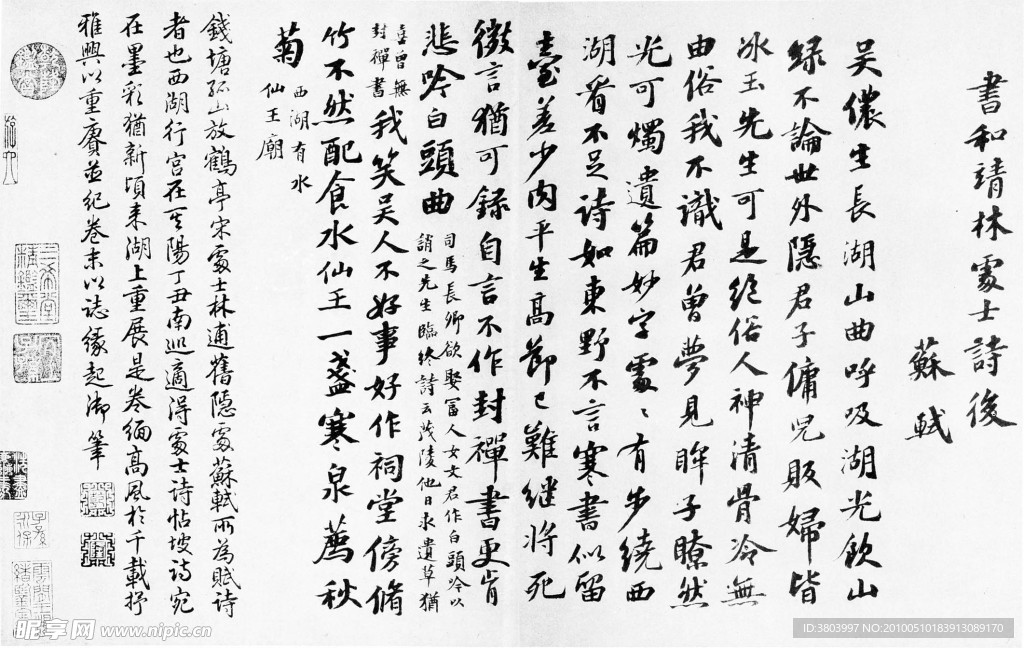 書和靖林處士詩後
蘇軾
吴儂生長湖山曲呼吸湖光飲山
緑不論世外隱君子傭兒販婦皆
冰玉先生可是絕俗人神清骨冷無
由俗我不識君曾夢見眸子瞭然
光可燭遺篇妙字處〻有步繞西
湖看不足詩如東野不言寒書似留
臺差少肉平生高節已難繼將死
微言猶可録自言不作封禪書更肯
悲吟白頭曲
司馬長卿欲娶富人女文君作白頭吟以
誚之先生臨終詩云茂陵他日求遺草猶
喜曾無
封禪書
我笑吴人不好事好作祠堂傍脩
竹不然配食水仙王一盞寒泉薦秋
菊
西湖有水
仙王廟
錢塘孤山放鶴亭宋處士林逋舊隱處蘇軾所為賦詩
者也西湖行宫在其陽丁丑南巡適得處士詩帖坡詩宛
在墨彩猶新頃來湖上重展是卷緬高風於千載抒
雅興以重賡並紀卷末以誌緣起御筆
昵享网 www.nipic.cn
ID:3803997 NO:20100510183913089170